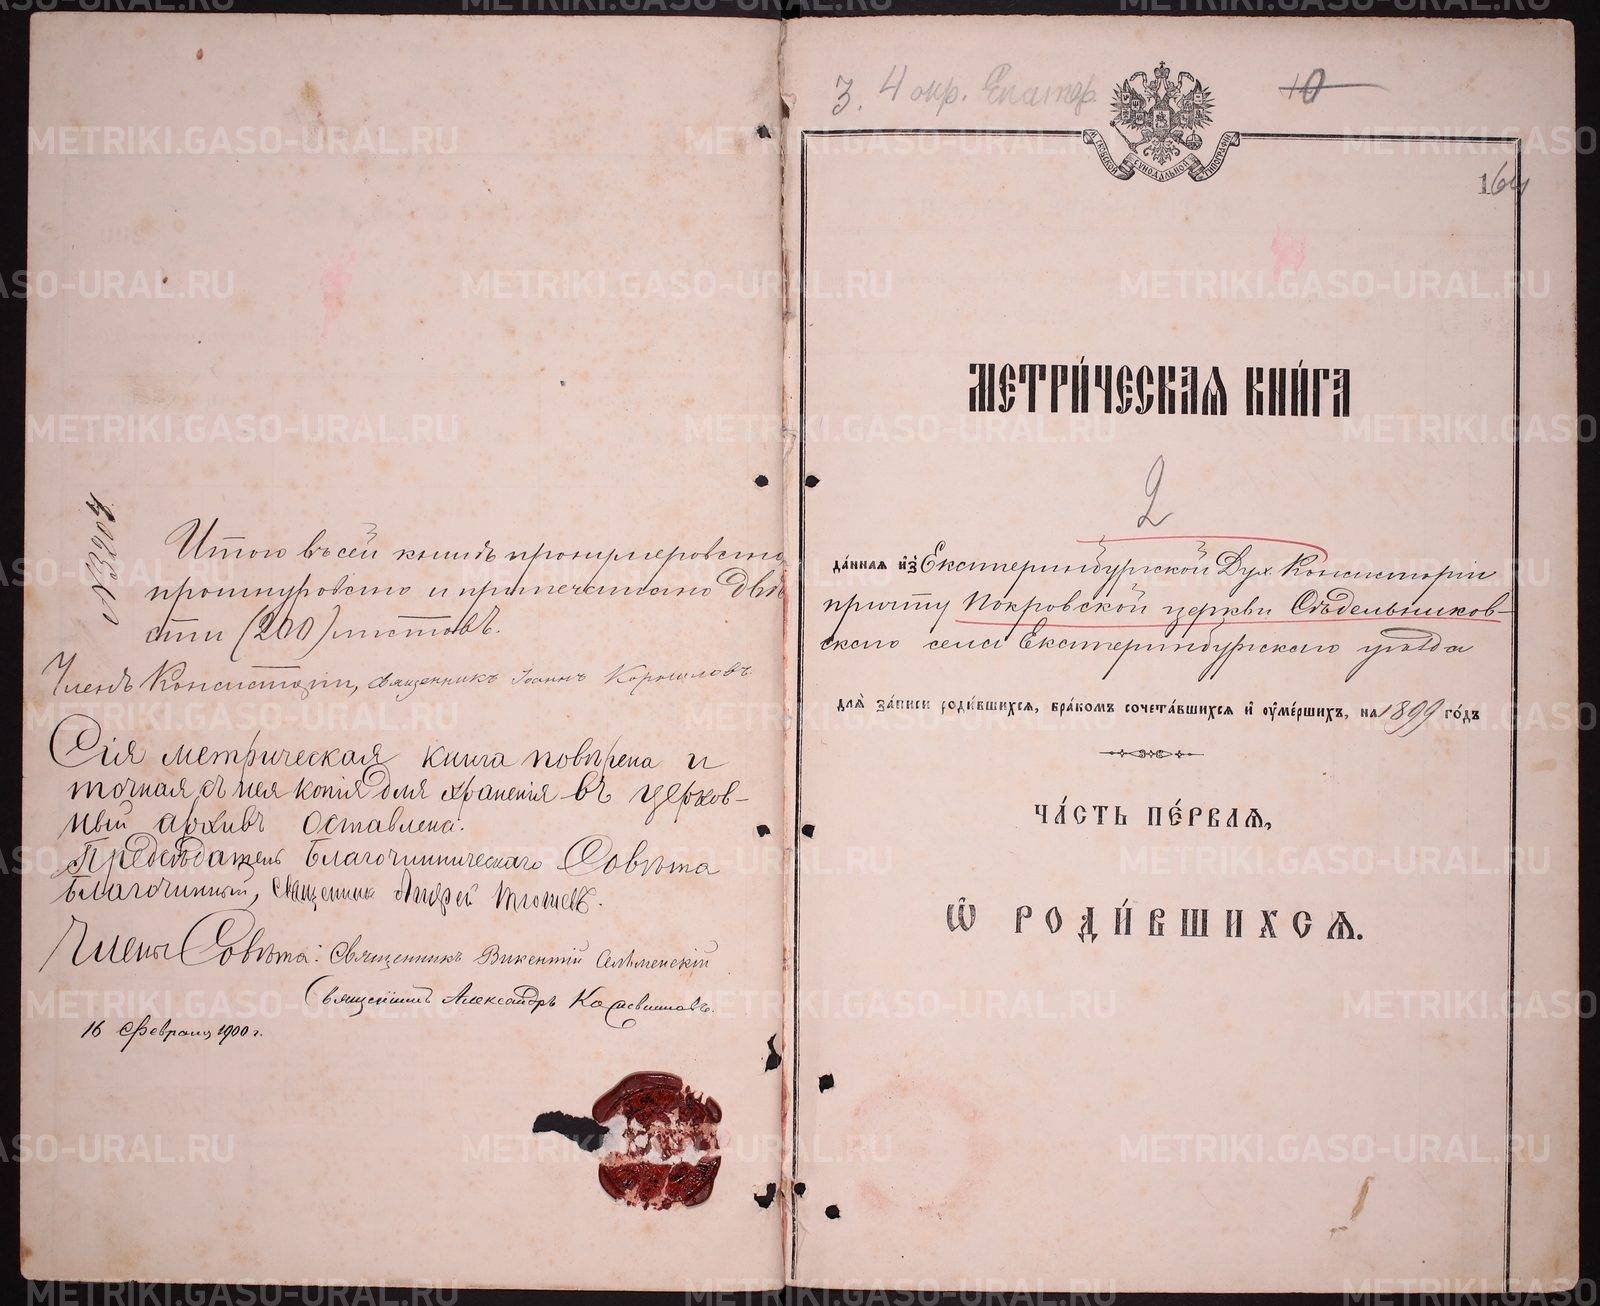 Итого въ сей книгѣ пронумеровано
прошнуровано и припечатано двѣ
сти (200) листовъ.
Членъ Консисторіи, священникъ Іоаннъ
Сія метрическая книга повѣрена и
точная съ нея копія для храненія въ церков-
ный архивъ оставлена.
Предсѣдатель Благочинническаго Совѣта
Благочинный, священникъ Андрей
Члены Совѣта: священникъ Викентій
Священникъ Александръ
16 февраля 1900 г.
3. 4 окр. Екатер.
10
164
МЕТРИ́ЧЕСКАѦ КНИ́ГА
2
да́нная изъ Екатеринбургской Дух. Консисторіи
причту Покровской церкви Сѣдельников-
скаго села Екатеринбургскаго уѣзда
для за́писи роди́вшихся, бра́комъ сочета́вшихся и оуме́ршихъ, на 1899 го́дъ
ЧА́СТЬ ПЕ́РВАѦ,
Ѡ РОДИ́ВШИХСѦ.
METRIKI.GASO-URAL.RU